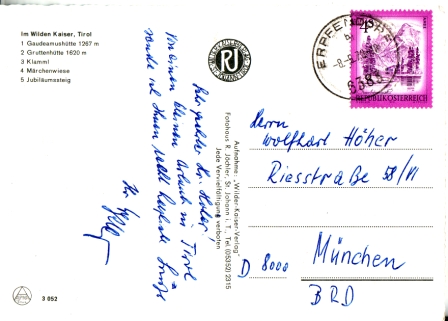 Im Wilden Kaiser, Tirol
1 Gaudeamushütte 1267 m
2 Gruttenhütte 1620 m
3 Klamml
4 Märchenwiese
5 Jubiläumssteig
3 052
RJ
Aufnahme: „Wilder-Kaiser-Verlag"
Fotohaus R. Jöchler, St. Johann i. T., Tel. (05352) 2315
Jede Vervielfältigung verboten
Sehr geehrter Hr. Höher,
Von einem kleinen Urlaub in Tirol
sende ich Ihnen recht herzliche Grüße
Ihr
ERPFENDORF
638
4
REPUBLIK ÖSTERREICH
Herrn
Wolfhart Höher
Riesstraße 58/VI
D 8000 München
BRD